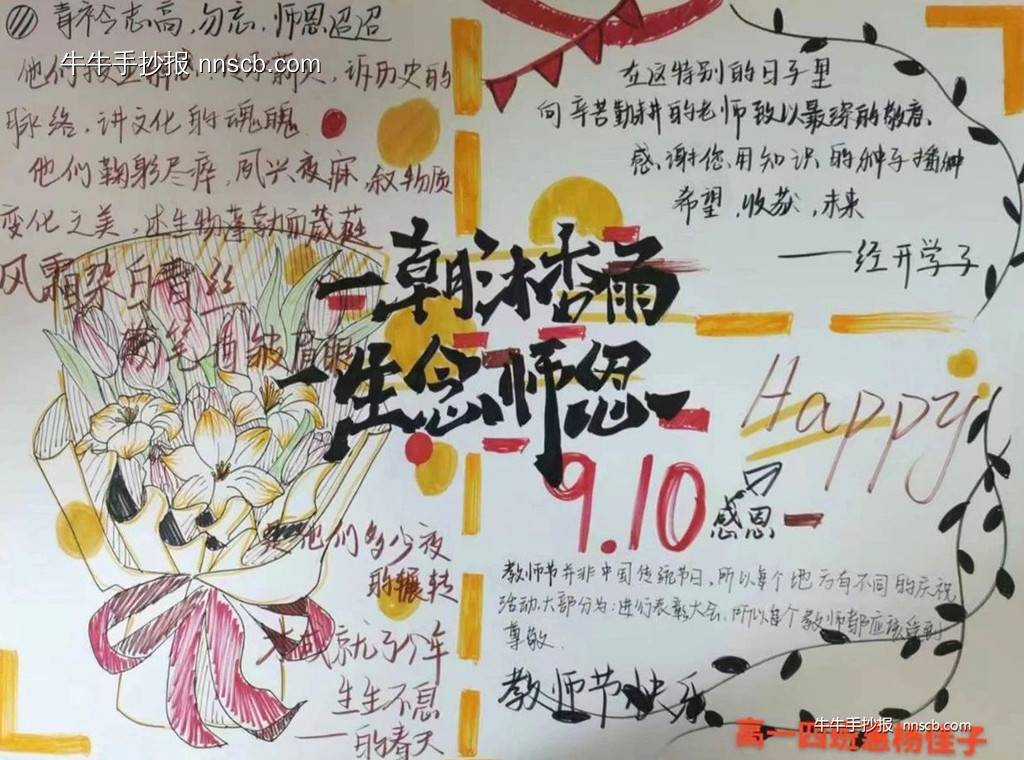 青衿志高,勿忘,师恩迢迢
牛牛手抄报 nnscb.com
诉历史的
脉络,讲文化的魂魄
他们鞠躬尽瘁,夙兴夜寐,叙物质
变化之美,述生物蓬勃而葳蕤
风霜染白青丝
在这特别的日子里
向辛苦勤耕的老师致以最深的敬意,
感谢您,用知识的种子播种
希望,收获,未来
——经开学子
一朝沐杏雨
一生念师恩
Happy
9.10
感恩
是他们多少夜
的辗转
才成就了个年
生生不息
的春天
教师节并非中国传统节日,所以每个地方有不同的庆祝
活动,大部分为:进行表彰大会,所以每个教师都应该受到
尊敬.
教师节快乐
高一四班 杨佳子
牛牛手抄报 nnscb.com